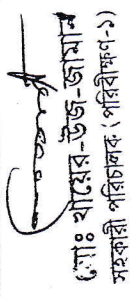 (মোঃ খায়ের-উজ-জামান
সহকারী পরিচালক (পরিবীক্ষণ-১)